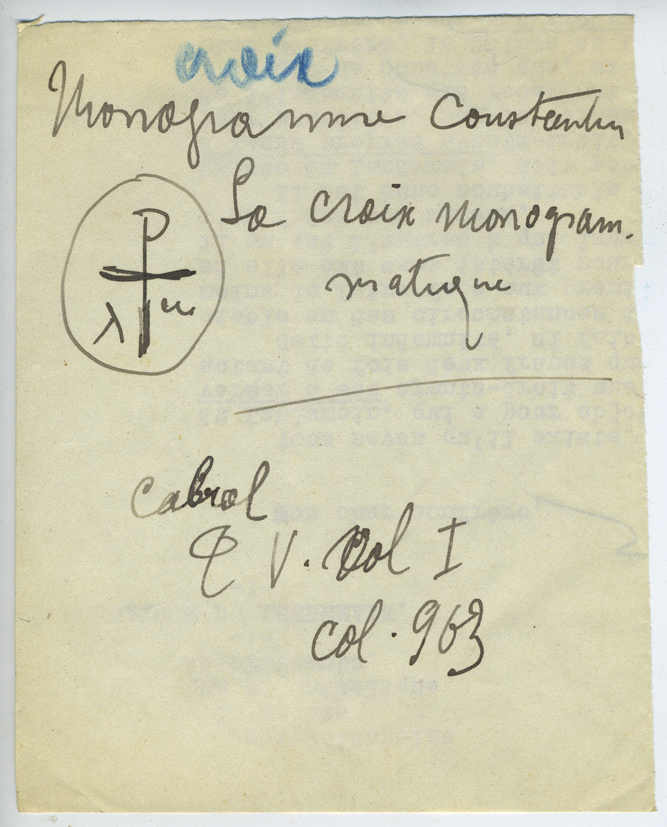 croix
Monogramme Constantin
La croix monogram.
matique
P
λ ω
cabrol
V. Vol I
col. 963